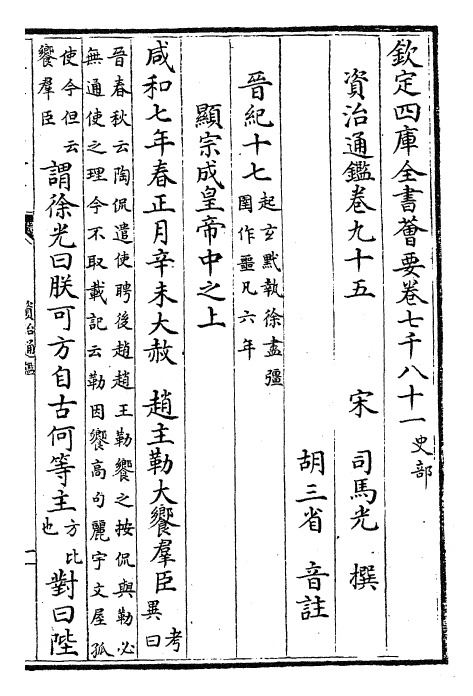 欽定四庫全書薈要卷七千八十一 史部
資治通鑑卷九十五 宋 司馬光 撰
胡三省 音註
晉紀十七 起玄默執徐盡彊
圉作噩凡六年
顯宗成皇帝中之上
咸和七年春正月辛未大赦 趙主勒大饗羣臣 考
異曰
晉春秋云陶侃遣使聘後趙趙王勒饗之按侃與勒必
無通使之理今不取載記云勒因饗高句麗宇文屋孤
使今但云
饗羣臣
謂徐光曰朕可方自古何等主 方比
也 對曰陛
資治通鑑